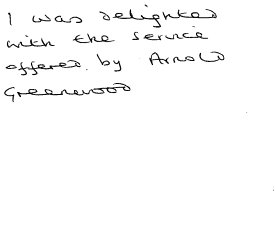 I was delighted
with the service
offered by Arnold
Greenwood